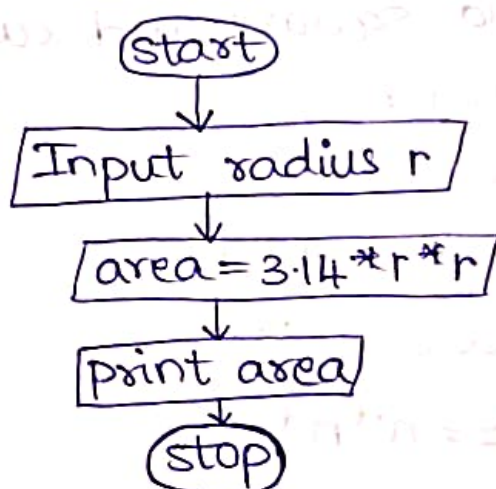 start
Input radius r
area = 3.14 * r * r
print area
stop